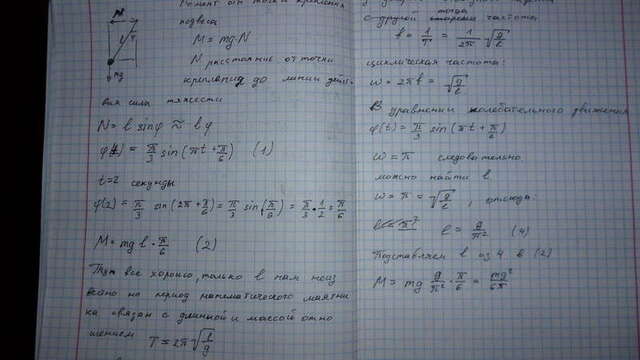 N
l
T
mg
Момент от точки крепления
подвеса
M = mg N
N расстояние от точки
крепления до линии действ
вия силы тяжести
N = l sinφ ≈ lφ
φ(t) = π/3 sin(πt + π/6) (1)
t=2 секунды
φ(2) = π/3 sin(2π + π/6) = π/3 sin(π/6) = π/3 · 1/2 = π/6
M = mg l · π/6 (2)
Тут все хорошо, только l нам неиз
вено но период математического маятни
ка связан с длинной и массой отно
шением T = 2π√(l/g)
тогда
с другой стороны частота
ν = 1/T = 1/2π √(g/l)
циклическая частота:
ω = 2πν = √(g/l)
В уравнении колебательного движения
φ(t) = π/3 sin(πt + π/6)
ω = π следовательно
можно найти l
ω = π = √(g/l), отсюда
l = g/π² (4)
Подставляем l из 4 в (2)
M = mg g/π² · π/6 = mg²/6π